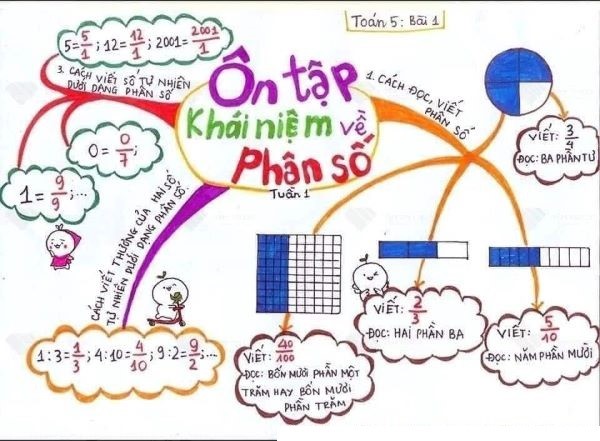 Toán 5: Bài 1
Ôn tập
Khái niệm về
Phân số
Tuần 1
1. CÁCH ĐỌC, VIẾT
PHÂN SỐ
VIẾT: 3/4
ĐỌC: BA PHẦN TƯ
VIẾT: 5/10
ĐỌC: NĂM PHẦN MƯỜI
VIẾT: 2/3
ĐỌC: HAI PHẦN BA
VIẾT: 40/100
ĐỌC: BỐN MƯƠI PHẦN MỘT
TRĂM HAY BỐN MƯƠI
PHẦN TRĂM
CÁCH VIẾT THƯƠNG CỦA HAI SỐ
TỰ NHIÊN DƯỚI DẠNG PHÂN SỐ.
1:3=1/3; 4:10=4/10; 9:2=9/2;...
3. CÁCH VIẾT SỐ TỰ NHIÊN
DƯỚI DẠNG PHÂN SỐ
5=5/1; 12=12/1; 2001=2001/1
0=0/7;
1=9/9;...